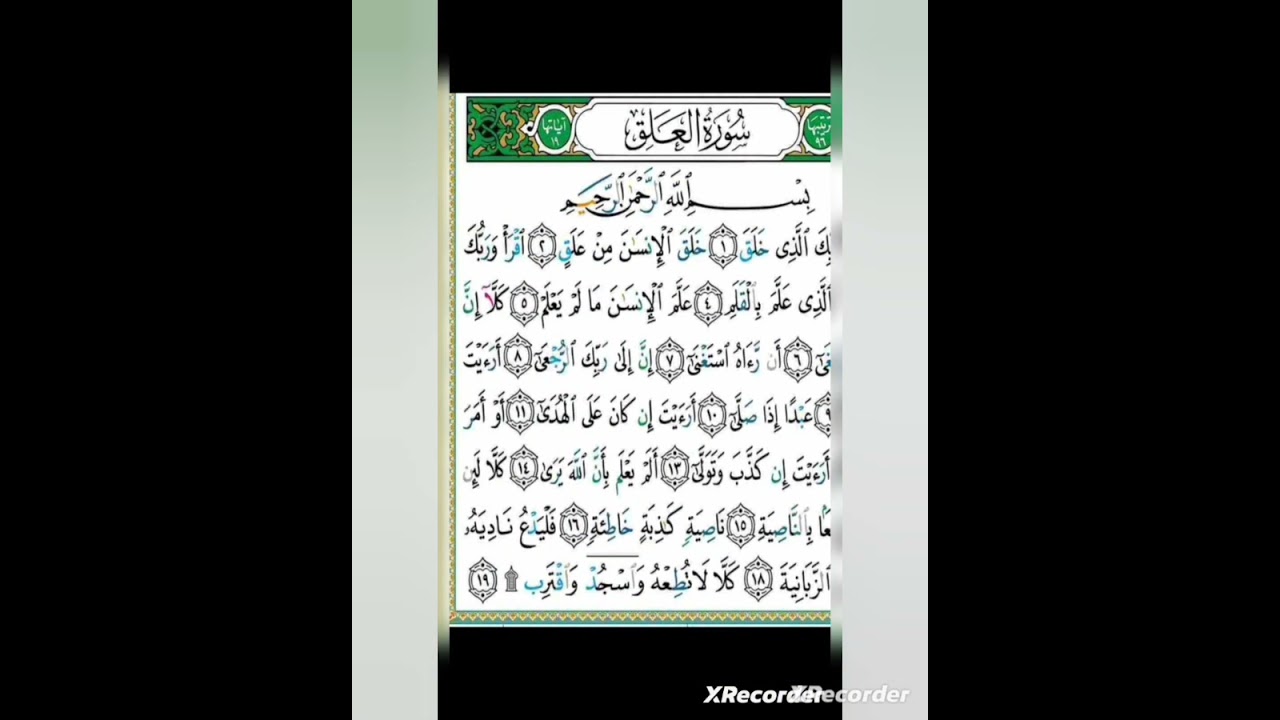 آياتها ١٩ سُورَةُ العَلَقِ ترتيبها ٩٦
بِسْمِ ٱللَّهِ ٱلرَّحْمَٰنِ ٱلرَّحِيمِ
ٱلَّذِى خَلَقَ ١ خَلَقَ ٱلْإِنسَٰنَ مِنْ عَلَقٍ ٢ ٱقْرَأْ وَرَبُّكَ
ٱلَّذِى عَلَّمَ بِٱلْقَلَمِ ٤ عَلَّمَ ٱلْإِنسَٰنَ مَا لَمْ يَعْلَمْ ٥ كَلَّآ إِنَّ
٦ أَن رَّءَاهُ ٱسْتَغْنَىٰٓ ٧ إِنَّ إِلَىٰ رَبِّكَ ٱلرُّجْعَىٰٓ ٨ أَرَءَيْتَ
٩ عَبْدًا إِذَا صَلَّىٰٓ ١٠ أَرَءَيْتَ إِن كَانَ عَلَى ٱلْهُدَىٰٓ ١١ أَوْ أَمَرَ
أَرَءَيْتَ إِن كَذَّبَ وَتَوَلَّىٰٓ ١٣ أَلَمْ يَعْلَم بِأَنَّ ٱللَّهَ يَرَىٰ ١٤ كَلَّا لَئِن
بِٱلنَّاصِيَةِ ١٥ نَاصِيَةٍ كَٰذِبَةٍ خَاطِئَةٍ ١٦ فَلْيَدْعُ نَادِيَهُۥ
ٱلزَّبَانِيَةَ ١٨ كَلَّا لَا تُطِعْهُ وَٱسْجُدْ وَٱقْتَرِب ۩ ١٩
XRecorder
XRecorder